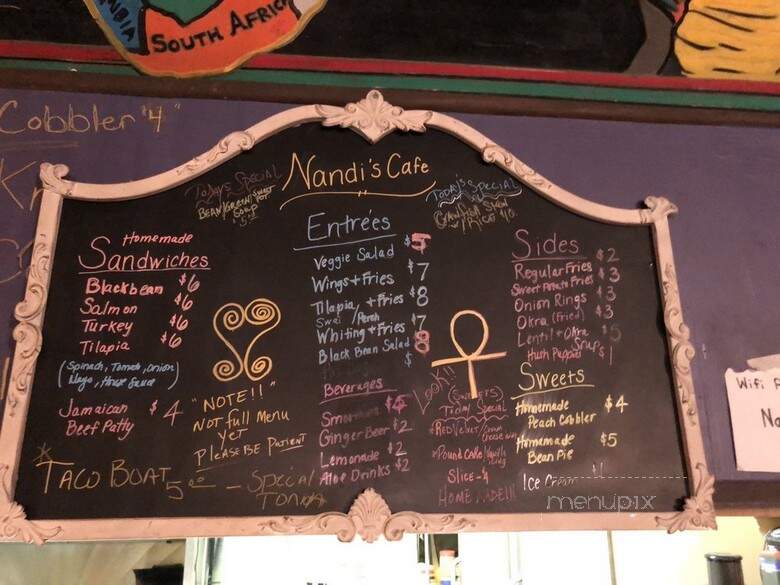 SOUTH AFRICA
Cobbler "4"
Nandi's Cafe
Today's Special
BEAN/GREEN/SWEET POT
SOUP
Today's Special
Entrées
Veggie Salad $5
Wings + Fries $7
Tilapia, + Fries $8
Swai / Perch
Whiting + Fries $7
Black Bean Salad 8
$
Homemade
Sandwiches
Blackbean $6
Salmon $6
Turkey $6
Tilapia $6
(Spinach, Tomato, Onion)
Mayo, House Sauce)
Jamaican $4
Beef Patty
"NOTE!!"
NOT full Menu
yet
PLEASE BE Patient
TACO BOAT 5.00 - Special
Beverages
Ginger Beer $2
Lemonade $2
Aloe Drinks $2
Look!!
Today Special
RED Velvet/Cream
Cheese
POUND CAKE/Vanilla
icing
Slice - 4
HOMEMADE!!!
Sides
Regular Fries $2
Sweet Potato Fries $3
Onion Rings $3
Okra (Fried) $3
Lentil + Okra $5
Soup
Hush Puppies $1
Sweets
Homemade $4
Peach Cobbler
Homemade $5
Bean Pie
Ice Cream
menupix
Wifi